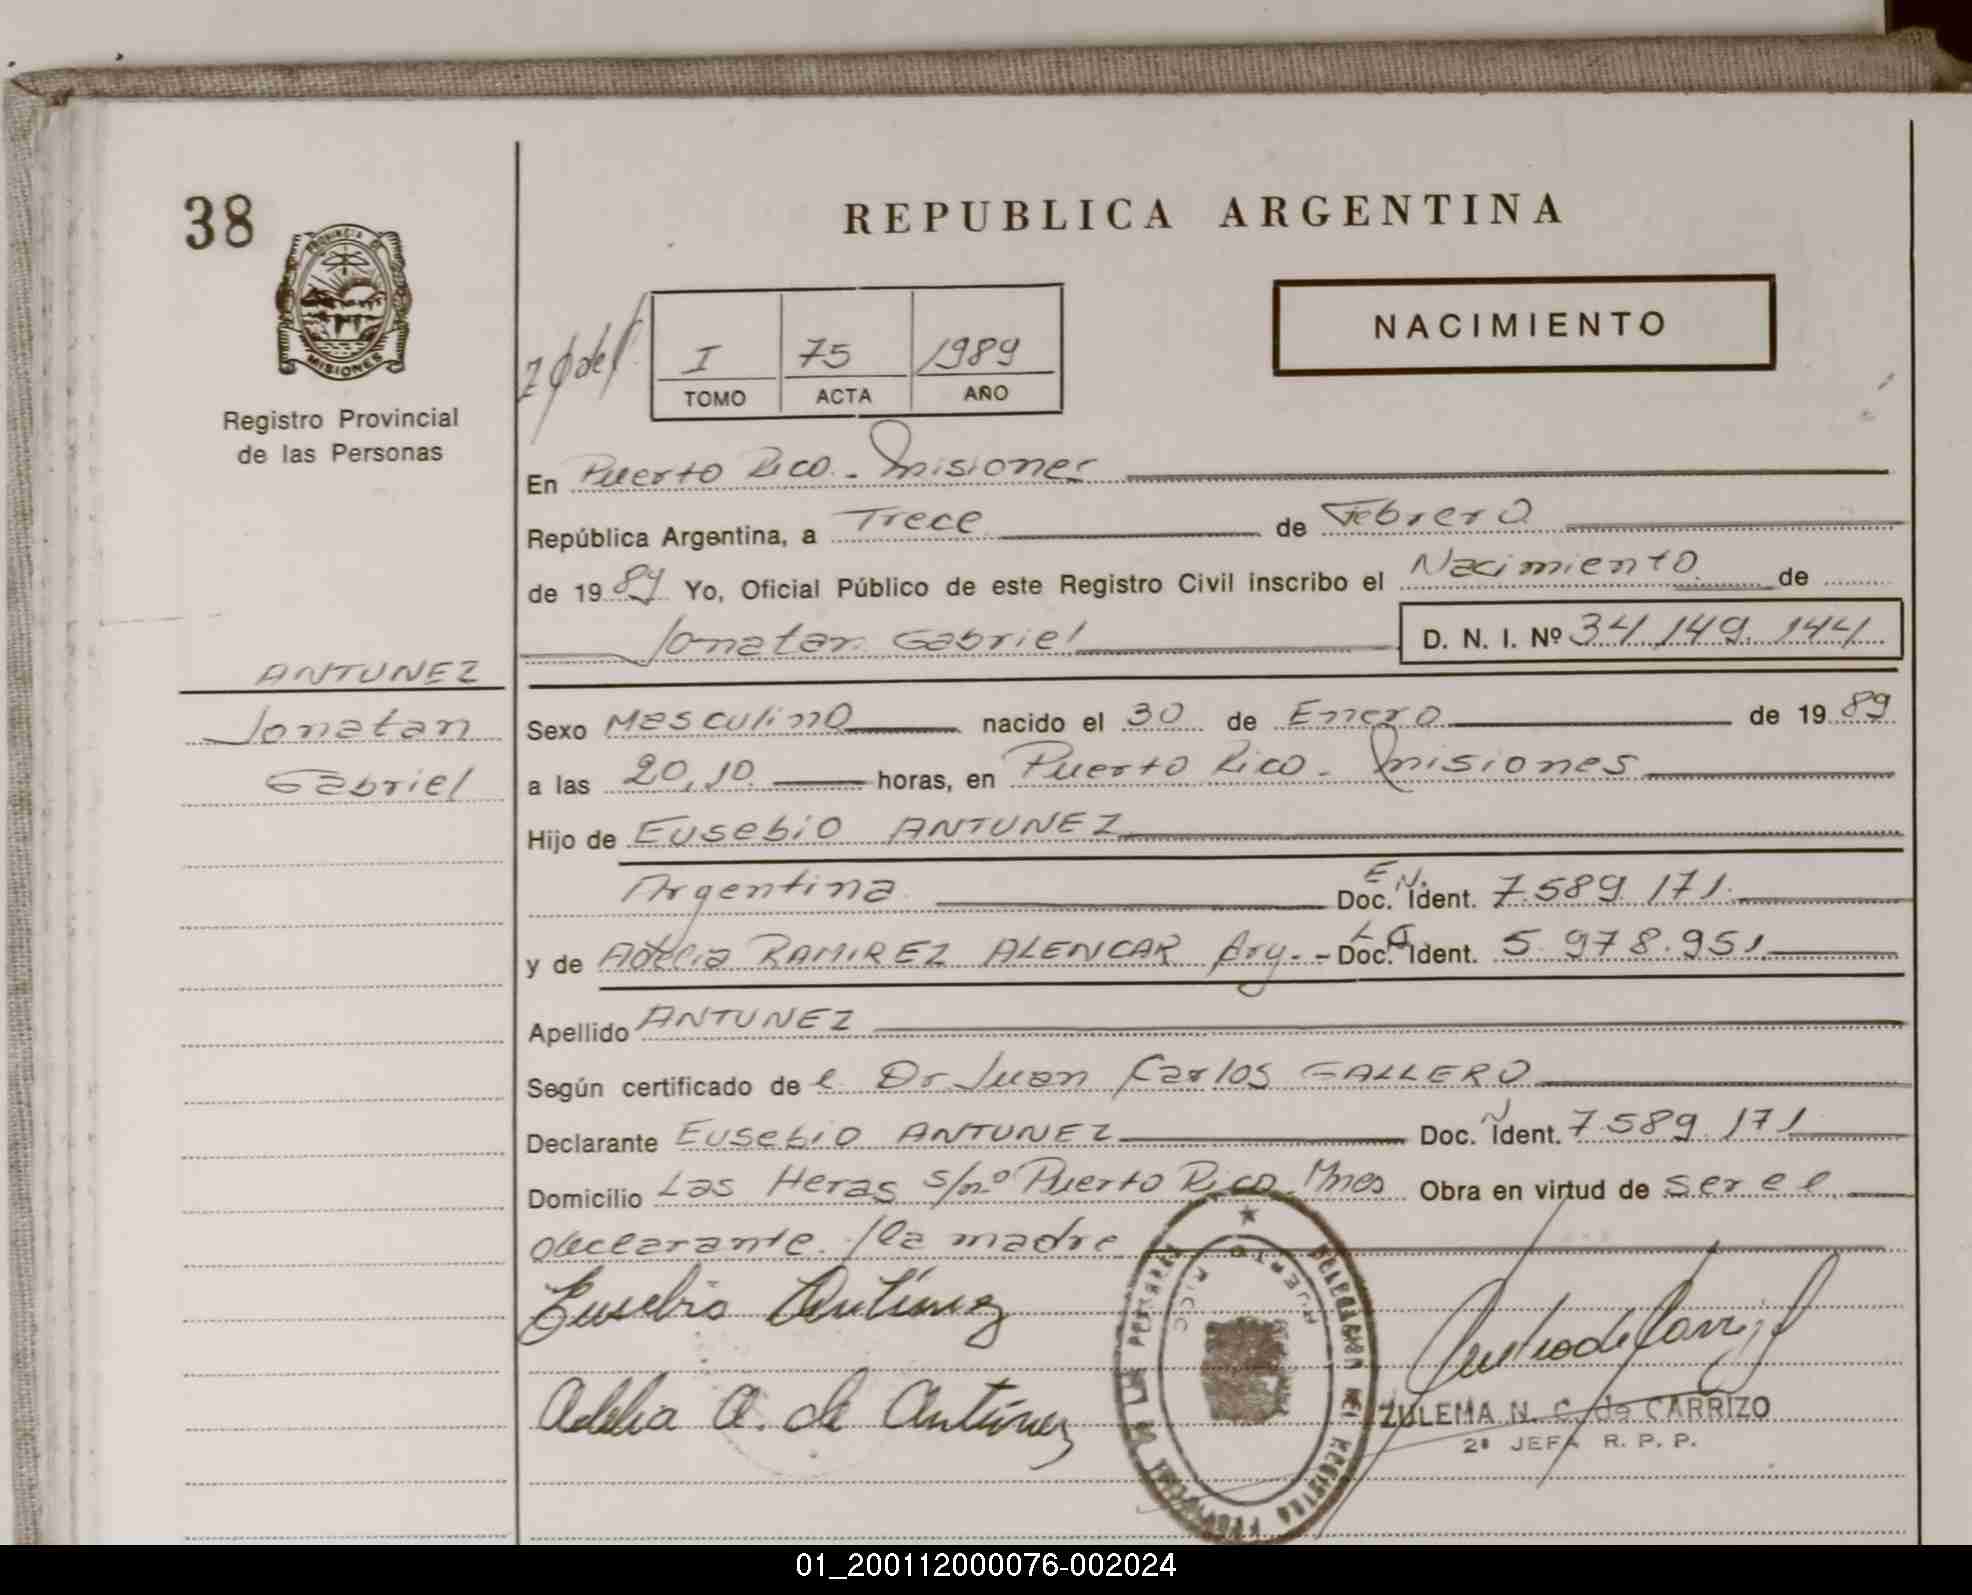 38
PROVINCIA DE
MISIONES
Registro Provincial
de las Personas
REPUBLICA ARGENTINA
NACIMIENTO
I 75 1989
TOMO ACTA AÑO
En Puerto Rico - Misiones
República Argentina, a Trece de Febrero
de 1989 Yo, Oficial Público de este Registro Civil inscribo el Nacimiento de
Jonatan Gabriel D. N. I. Nº 34.149.144
ANTUNEZ
Jonatan
Gabriel
Sexo Masculino nacido el 30 de Enero de 1989
a las 20,10 horas, en Puerto Rico - Misiones
Hijo de Eusebio ANTUNEZ
Argentina Doc. Ident. 7.589.171
y de Adelia RAMIREZ ALENCAR Arg. - Doc. Ident. 5.978.951
Apellido ANTUNEZ
Según certificado de l Dr Juan Carlos GALLERO
Declarante Eusebio ANTUNEZ Doc. Ident. 7.589.171
Domicilio Las Heras s/nº Puerto Rico Mnes Obra en virtud de ser el
declarante /la madre
Eusebio Antúnez
Adelia A. de Antúnez
PUERTO RICO
ZULEMA N. C. de CARRIZO
2ª JEFA R. P. P.
01_200112000076-002024